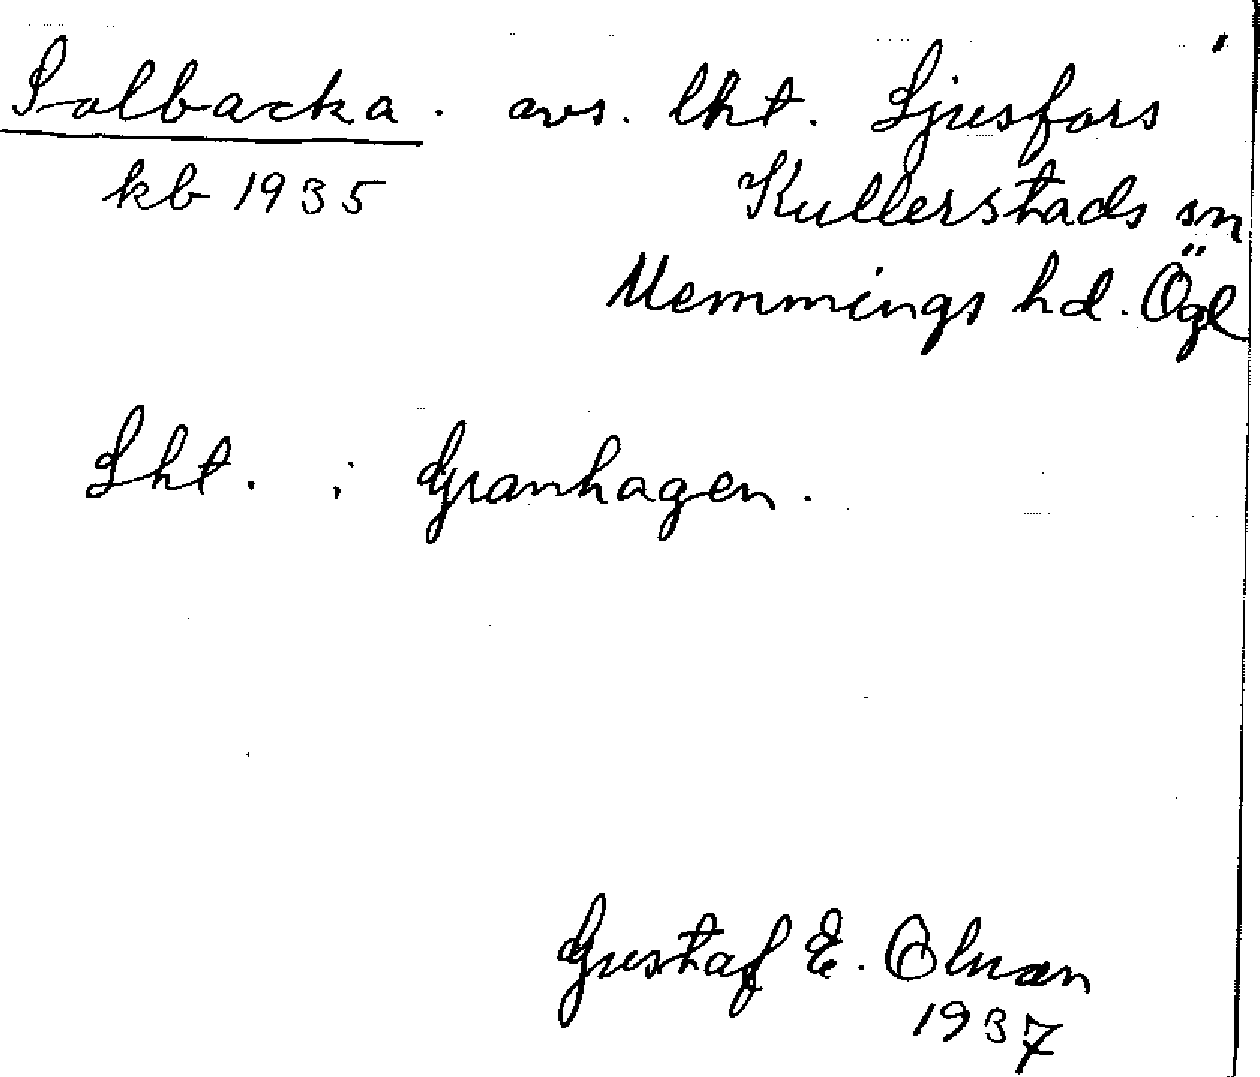 Solbacka. avs. lht. Ljusfors
kb 1935 Kullerstads sn
Memmings hd. Ögl
Lht. i Granhagen.
Gustaf E. Olson
1937